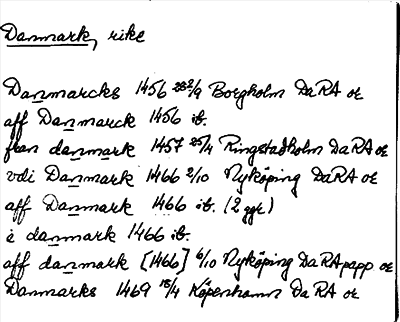 Danmark, rike
Danmarcks 1456 28/9 Borgholm DaRA or
aff Danmarck 1456 ib.
fran danmark 1457 25/4 Ringstadholm DaRA or
vdi Danmark 1466 2/10 Nyköping DaRA or
aff Danmark 1466 ib. (2 ggr)
i danmark 1466 ib.
aff danmark [1466] 6/10 Nyköping DaRApapp or
Danmarks 1469 18/4 Köpenhamn DaRA or